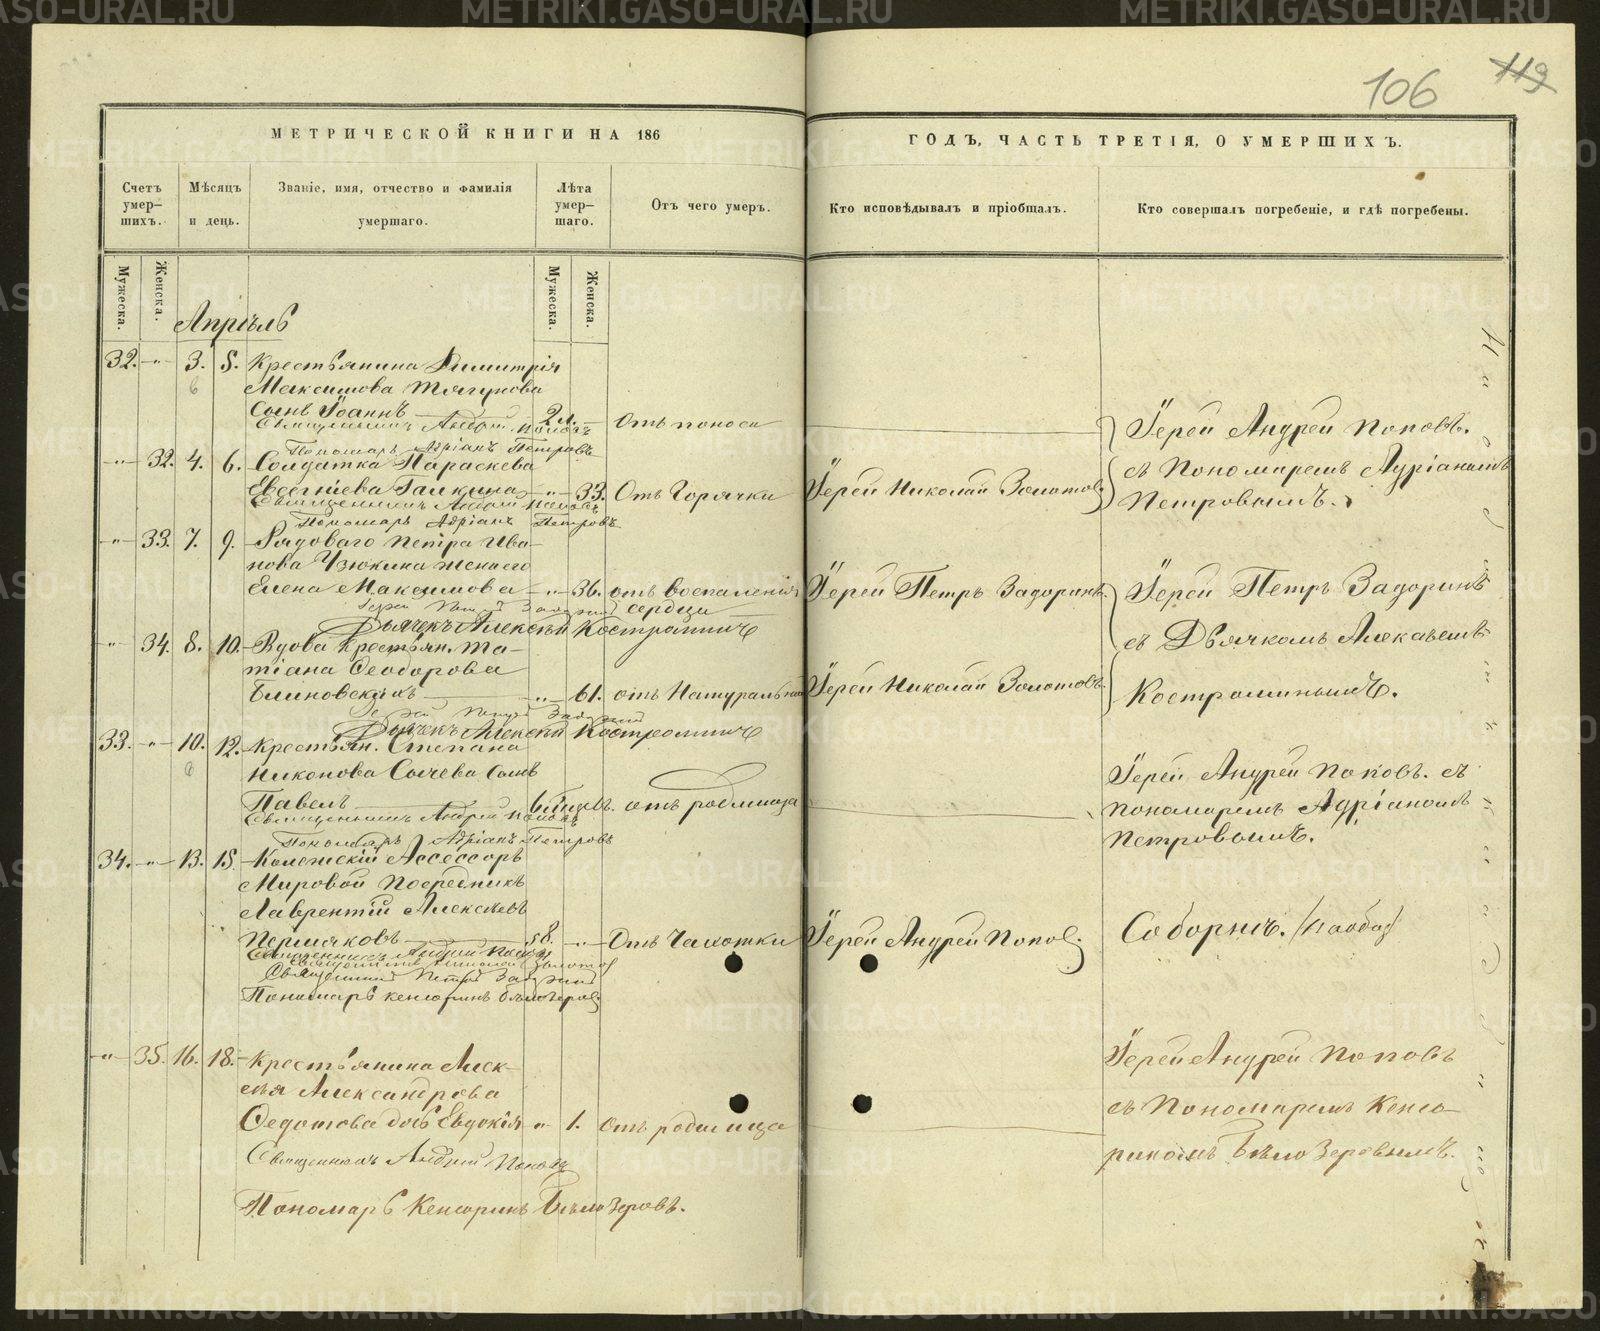 106 119
МЕТРИЧЕСКОЙ КНИГИ НА 186
ГОДЪ, ЧАСТЬ ТРЕТІЯ, О УМЕРШИХЪ.
Счетъ умер-шихъ.
Мѣсяцъ и день.
Званіе, имя, отчество и фамилія умершаго.
Лѣта умер-шаго.
Отъ чего умеръ.
Кто исповѣдывалъ и пріобщалъ.
Кто совершалъ погребеніе, и гдѣ погребены.
Мужеска.
Женска.
Мужеска.
Женска.
Апрѣль
32. " 3. 5. Крестьянина Димитрія
Максимова Тягунова
сынъ Іоаннъ 2 л. Отъ поноса
Священникъ Андрей Поповъ
Пономарь Адріанъ Петровъ
Іерей Андрей Поповъ.
съ Пономаремъ Адріаномъ
Петровымъ.
" 32. 4. 6. Солдатка Параскева
Евсегніева Галкина " 33. Отъ Горячки Іерей Николай Золотовъ
Священникъ Андрей Поповъ
Пономарь Адріанъ Петровъ
" 33. 7. 9. Рядоваго Петра Ива-
нова Чзюкина жена его
Елена Максимова " 36. отъ воспаленія Іерей Петръ Задоринъ
сердца
Іерей Петръ Задорин
Дьячекъ Алексѣй Костроминъ
Іерей Петръ Задоринъ
съ Дьячкомъ Алексѣемъ
Костроминымъ.
" 34. 8. 10. Вдова Крестьян. Та-
тіана Ѳеодорова
Блиновскихъ " 61. отъ Натуральной Іерей Николай Золотовъ.
Іерей Петръ Задорин
Дьячекъ Алексѣй Костроминъ
33. " 10. 12. Крестьян. Степана
Никонова Сычева сынъ
Павелъ отъ родимца
Священникъ Андрей Поповъ
Пономарь Адріанъ Петровъ
Іерей Андрей Поповъ. съ
пономаремъ Адріаномъ
Петровымъ.
34. " 13. 15. Колежскій Ассессоръ
Мировой Посредникъ
Лаврентій Алексѣевъ
Пермяковъ 58. " Отъ Чахотки Іерей Андрей Попов.
Соборнѣ.
Священникъ Андрей Поповъ
Священникъ Николай Золотов
Священникъ Петръ Задорин
Пономарь Кенсоринъ Бѣлозеровъ
" 35. 16. 18. Крестьянина Алек-
сѣя Александрова
Ѳедотова дочь Евдокія " 1. Отъ родимца
Священникъ Андрей Поповъ
Пономарь Кенсоринъ Бѣлозеровъ.
Іерей Андрей Поповъ
съ Пономаремъ Кенсо-
риномъ Бѣлозеровымъ.
METRIKI.GASO-URAL.RU